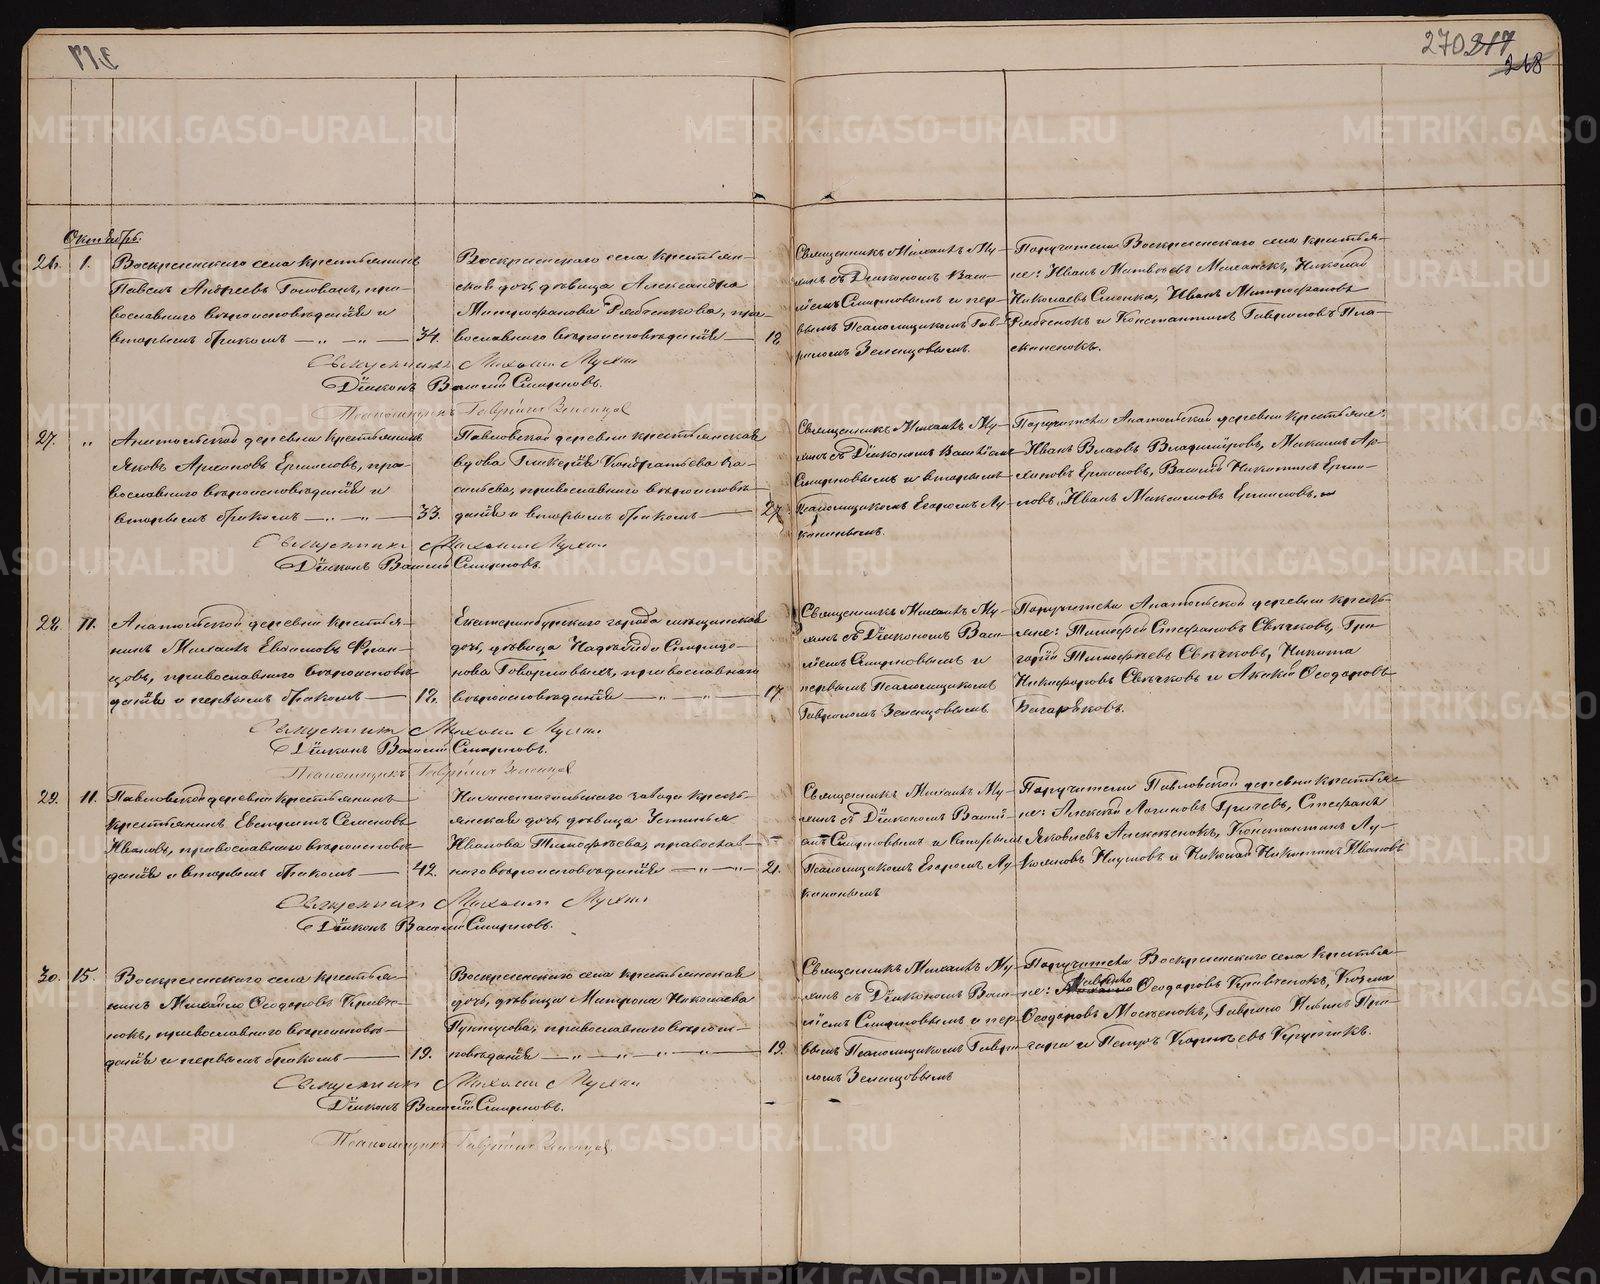 270 217
218
Октябрь.
26.
1.
Воскресенскаго села крестьянинъ
Павелъ Андреевъ Голованъ, пра-
вославнаго вѣроисповѣданія и
вторымъ бракомъ — „ — „ —
34.
Воскресенскаго села крестьян-
ская дочь, дѣвица Александра
Митрофанова Рябченкова, пра-
вославнаго вѣроисповѣданія —
18
Священникъ Михаилъ Му-
хинъ съ Діакономъ Васи-
ліемъ Смирновымъ и пер-
вымъ Псаломщикомъ Гав-
риломъ Зеленцовымъ.
Поручители Воскресенскаго села крестья-
не: Иванъ Матвѣевъ Николай
Николаевъ Иванъ Митрофановъ
Рябченокъ и Константинъ Гавриловъ
Священникъ Михаилъ Мухинъ
Діаконъ Василій Смирновъ.
Псаломщикъ Гавріилъ Зеленцовъ
27.
„
Анатольской деревни крестьянинъ
Яковъ Архиповъ Ермиловъ, пра-
вославнаго вѣроисповѣданія и
вторымъ бракомъ — „ — „ —
33.
Павловской деревни крестьянская
вдова Гликерія Кондратьева Ва-
сильева, православнаго вѣроисповѣ-
данія и вторымъ бракомъ —
27.
Священникъ Михаилъ Му-
хинъ съ Діакономъ Василіемъ
Смирновымъ и вторымъ
Псаломщикомъ Егоромъ Лу-
канинымъ.
Поручители Анатольской деревни крестьяне:
Иванъ Власовъ Владиміровъ, Максимъ Ар-
хиповъ Ермиловъ, Василій Никитинъ Ерми-
ловъ, Иванъ Максимовъ Ермиловъ.
Священникъ Михаилъ Мухинъ
Діаконъ Василій Смирновъ.
28.
11.
Анатольской деревни крестья-
нинъ Михаилъ Евдокимовъ
православнаго вѣроисповѣ-
данія и первымъ бракомъ —
18.
Екатеринбургскаго города мѣщанская
дочь, дѣвица Надежда Спиридо-
нова православнаго
вѣроисповѣданія — „ — „ —
17.
Священникъ Михаилъ Му-
хинъ съ Діакономъ Васи-
ліемъ Смирновымъ и
первымъ Псаломщикомъ
Гавриломъ Зеленцовымъ.
Поручители Анатольской деревни кресть-
яне: Тимофей Стефановъ Свѣчковъ, Гри-
горій Тимофеевъ Свѣчковъ, Никита
Никифоровъ Свѣчковъ и Акакій Ѳеодоровъ
Багаряковъ.
Священникъ Михаилъ Мухинъ
Діаконъ Василій Смирновъ.
Псаломщикъ Гавріилъ Зеленцовъ
29.
11.
Павловской деревни крестьянинъ
крестьянинъ Евстратъ Семеновъ
Ивановъ, православнаго вѣроисповѣ-
данія и вторымъ бракомъ —
42.
Нижнетагильскаго завода кресть-
янская дочь, дѣвица Устинья
Иванова Тимофеева, православ-
наго вѣроисповѣданія — „ — „ —
21.
Священникъ Михаилъ Му-
хинъ съ Діакономъ Василі-
емъ Смирновымъ и вторымъ
Псаломщикомъ Егоромъ Лу-
канинымъ
Поручители Павловской деревни крестья-
не: Алексѣй Логиновъ Стефанъ
Яковлевъ Константинъ Лу-
и Николай Никитинъ Ивановъ
Священникъ Михаилъ Мухинъ
Діаконъ Василій Смирновъ.
30.
15.
Воскресенскаго села крестья-
нинъ Михайло Ѳеодоровъ Кравче-
нокъ, православнаго вѣроисповѣ-
данія и первымъ бракомъ —
19.
Воскресенскаго села крестьянская
дочь, дѣвица Матрона Николаева
православнаго вѣроис-
повѣданія — „ — „ — „ — „ —
19.
Священникъ Михаилъ Му-
хинъ съ Діакономъ Васи-
ліемъ Смирновымъ и пер-
вымъ Псаломщикомъ Гаври-
ломъ Зеленцовымъ
Поручители Воскресенскаго села крестья-
не: Ѳеодоровъ Кравченокъ, Козма
Ѳеодоровъ Гаврило Ивановъ
и Петръ Корнѣевъ
Священникъ Михаилъ Мухинъ
Діаконъ Василій Смирновъ.
Псаломщикъ Гавріилъ Зеленцовъ.
METRIKI.GASO-URAL.RU